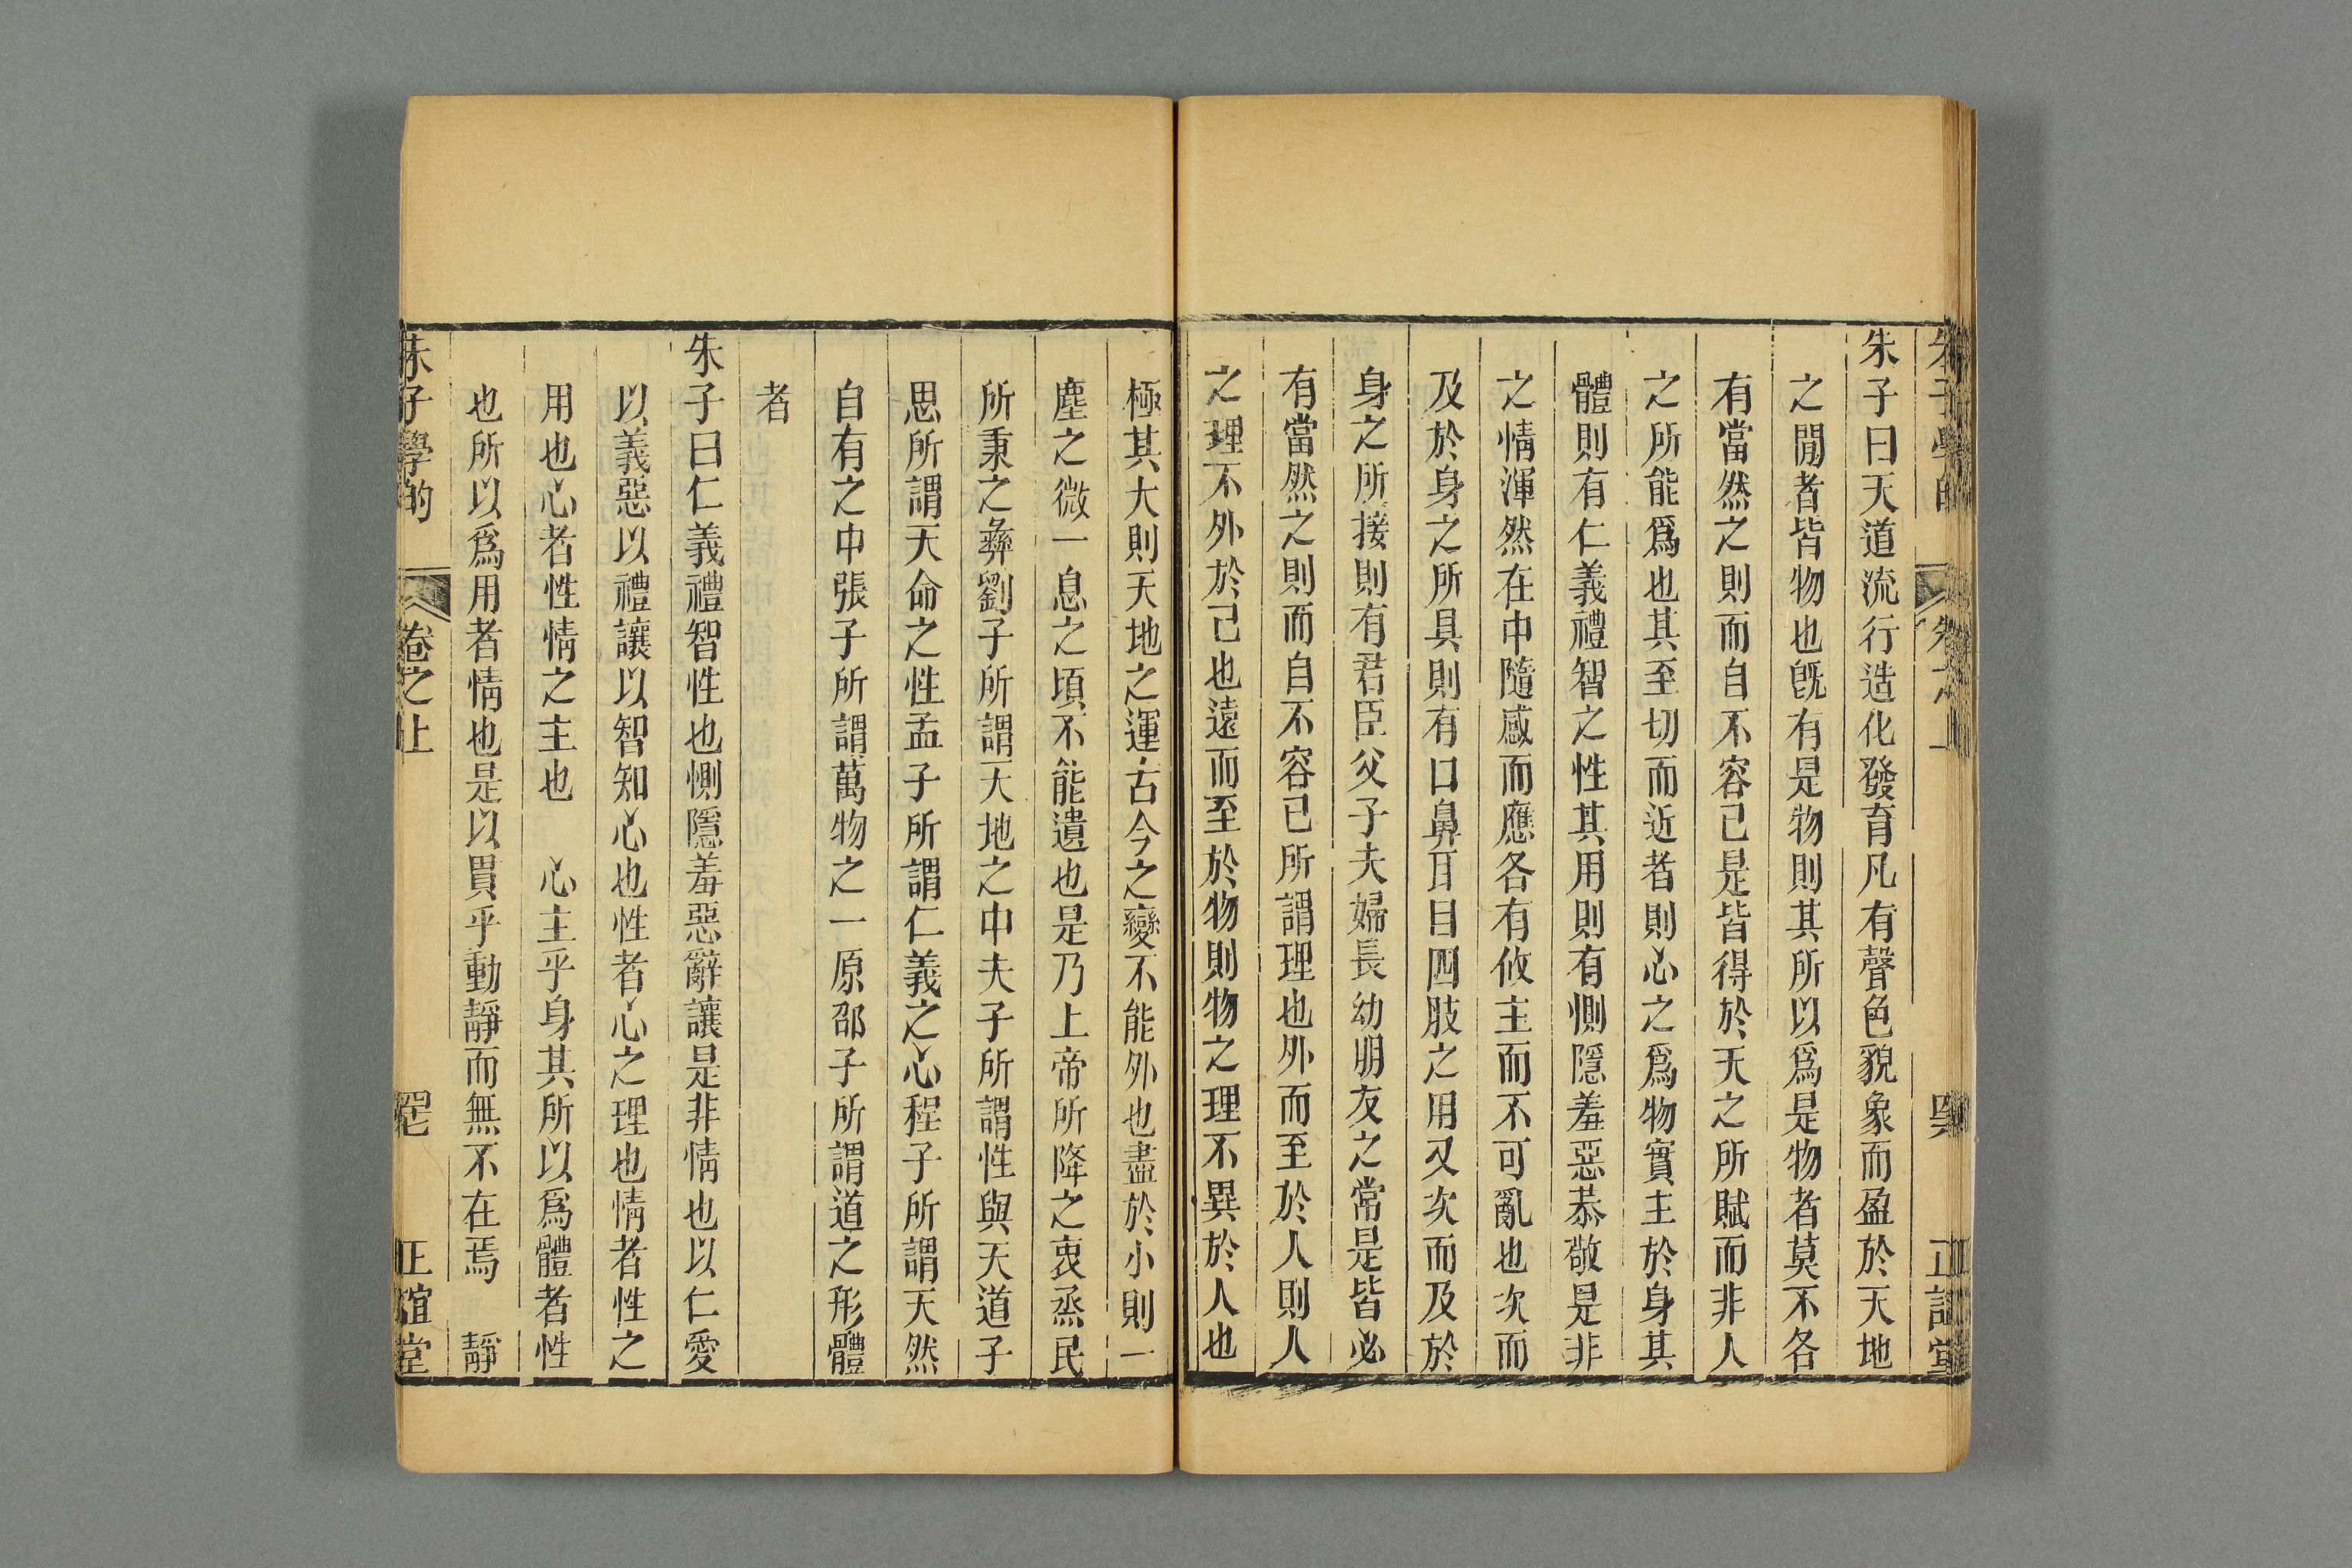 朱子曰天道流行造化發育凡有聲色貌象而盈於天地
之閒者皆物也旣有是物則其所以爲是物者莫不各
有當然之則而自不容已是皆得於天之所賦而非人
之所能爲也其至切而近者則心之爲物實主於身其
體則有仁義禮智之性其用則有惻隱羞惡恭敬是非
之情渾然在中隨感而應各有攸主而不可亂也次而
及於身之所具則有口鼻耳目四肢之用又次而及於
身之所接則有君臣父子夫婦長幼朋友之常是皆必
有當然之則而自不容已所謂理也外而至於人則人
之理不外於己也遠而至於物則物之理不異於人也
極其大則天地之運古今之變不能外也盡於小則一
塵之微一息之頃不能遺也是乃上帝所降之衷烝民
所秉之彝劉子所謂天地之中夫子所謂性與天道子
思所謂天命之性孟子所謂仁義之心程子所謂天然
自有之中張子所謂萬物之一原邵子所謂道之形體
者
朱子曰仁義禮智性也惻隱羞惡辭讓是非情也以仁愛
以義惡以禮讓以智知心也性者心之理也情者性之
用也心者性情之主也　心主乎身其所以爲體者性
也所以爲用者情也是以貫乎動靜而無不在焉　靜
朱子學的　卷之上　正誼堂